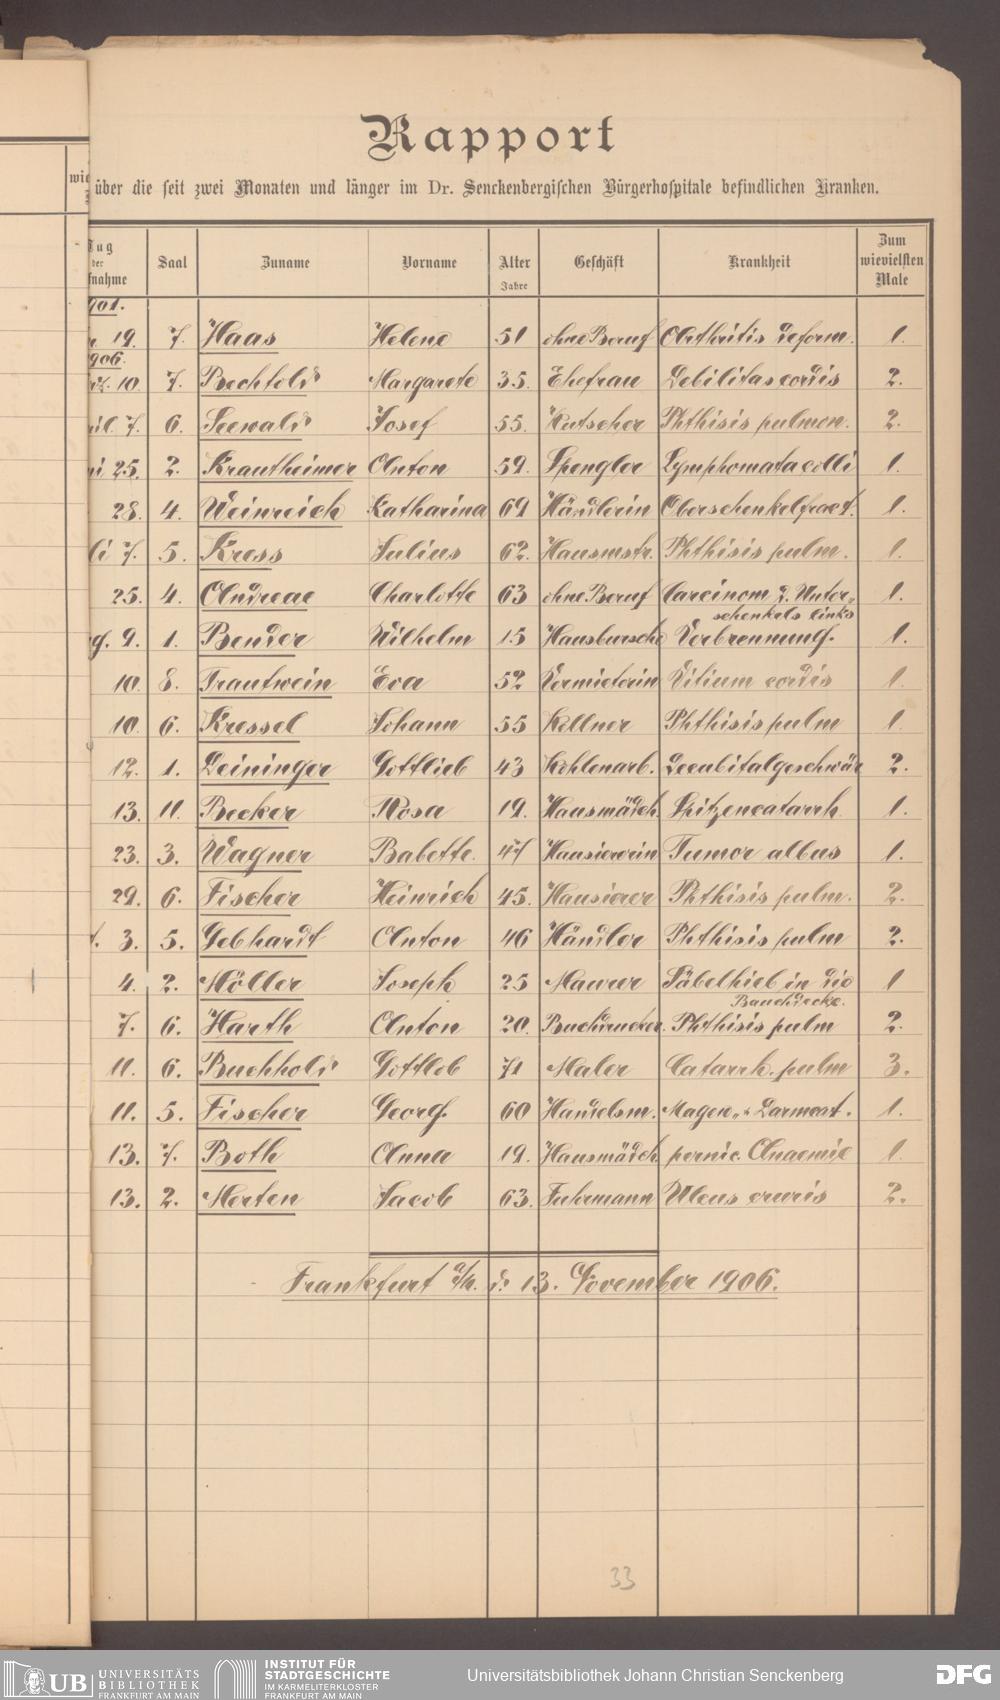 Rapport
über die seit zwei Monaten und länger im Dr. Senckenbergischen Bürgerhospitale befindlichen Kranken.
Tag der Aufnahme Saal Zuname Vorname Alter Jahre Geschäft Krankheit Zum wievielsten Male
901.
19. 7. Haas Helene 51 ohne Beruf Arthritis deform. 1.
906.
10. 7. Bechtold Margarete 35. Ehefrau Debilitas cordis 2.
il 7. 6. Seewald Josef 55. Kutscher Phthisis pulmon. 2.
i 25. 2. Krautheimer Anton 59. Spengler Lymphomata colli 1.
28. 4. Weinreich Katharina 69 Händlerin Oberschenkelfract. 1.
li 7. 5. Kress Julius 62. Hausmstr. Phthisis pulm. 1.
25. 4. Andreae Charlotte 63 ohne Beruf Carcinom d. Unter-
schenkels links 1.
g. 9. 1. Bender Wilhelm 15 Hausbursche Verbrennung. 1.
10. 8. Trautwein Eva 52 Vermieterin Vitium cordis 1
10. 6. Kressel Johann 55 Kellner Phthisis pulm 1.
12. 1. Deininger Gottlieb 43 Kohlenarb. Decubitalgeschwür 2.
13. 11. Becker Rosa 19. Hausmädch. Spitzencatarrh 1.
23. 3. Wagner Babette. 47 Hausiererin Tumor albus 1.
29. 6. Fischer Heinrich 45. Hausierer Phthisis pulm. 2.
t. 3. 5. Gebhardt Anton 46 Händler Phthisis pulm 2.
4. 2. Möller Joseph 25 Maurer Säbelhieb in die
Bauchdecke. 1
7. 6. Harth Anton 20. Buchdrucker. Phthisis pulm 2.
11. 6. Buchhold Gottlob 71 Maler Catarrh. pulm 3.
11. 5. Fischer Georg. 60 Handelsm. Magen- u. Darmcat. 1.
13. 7. Both Anna 19. Hausmädch. pernic. Anaemie 1.
13. 2. Merten Jacob 63. Fuhrmann Ulcus cruris 2.
Frankfurt a/M. d. 13. November 1906.
33
UB UNIVERSITÄTS
BIBLIOTHEK
FRANKFURT AM MAIN
INSTITUT FÜR
STADTGESCHICHTE
IM KARMELITERKLOSTER
FRANKFURT AM MAIN
Universitätsbibliothek Johann Christian Senckenberg
DFG